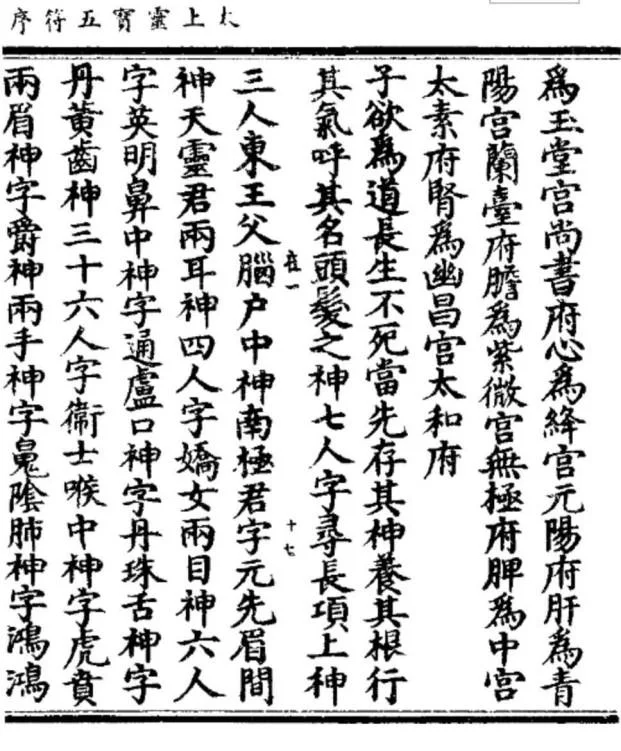 太上靈寶五符序
爲玉堂宫尚書府心爲絳宫元陽府肝爲青
陽宫蘭臺府膽爲紫微宫無極府脾爲中宫
太素府腎爲幽昌宫太和府
子欲爲道長生不死當先存其神養其根行
其氣呼其名頭髮之神七人字尋長項上神
衣一
十七
三人東王父腦户中神南極君字元先眉間
神天靈君兩耳神四人字嬌女兩目神六人
字英明鼻中神字通盧口神字丹珠舌神字
丹黄齒神三十六人字衛士喉中神字虎賁
兩眉神字爵神兩手神字陰肺神字鴻鴻